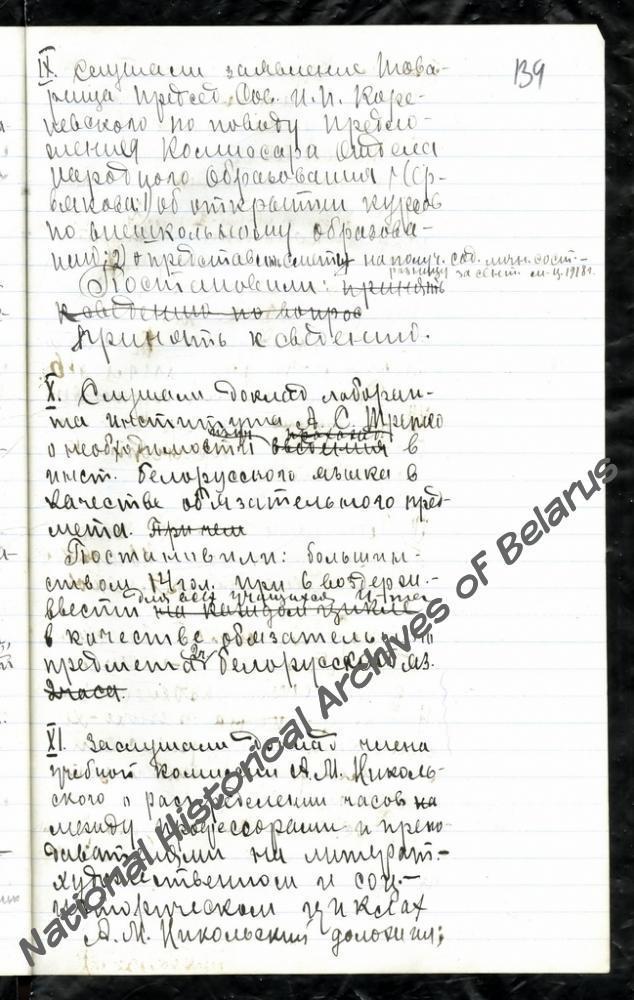 139
IX. Слушали заявление Това-
рища Председ. Сов. И. И. Каре-
невского по поводу предло-
жения Комиссара Отдела
народного образования
об открытии курсов
по внешкольному образова-
нию; 2) о представлении сметы на получ. сод. личн. сост.
разницу за сент. м-ц. 1918 г.
Постановили: принять
к сведению по вопрос
Принять к сведению.
X. Слушали доклад лаборан-
та института А. С.
о необходимости введения в
инст. белорусского языка в
качестве обязательного пред-
мета. Причем
Постановили: большин-
ством 14 гол. при 8 воздерж.-
для всех учащихся
ввести на каждом цикле
в качестве обязательного
предмета 2 ч. белорусского яз.
2 часа.
XI. Заслушали доклад члена
учебной комиссии А. М. Николь-
ского о распределении часов на
между профессорами и препо-
давателями на литерат.-
художественном и соц.-
историческом циклах
А. М. Никольский доложил:
National Historical Archives of Belarus